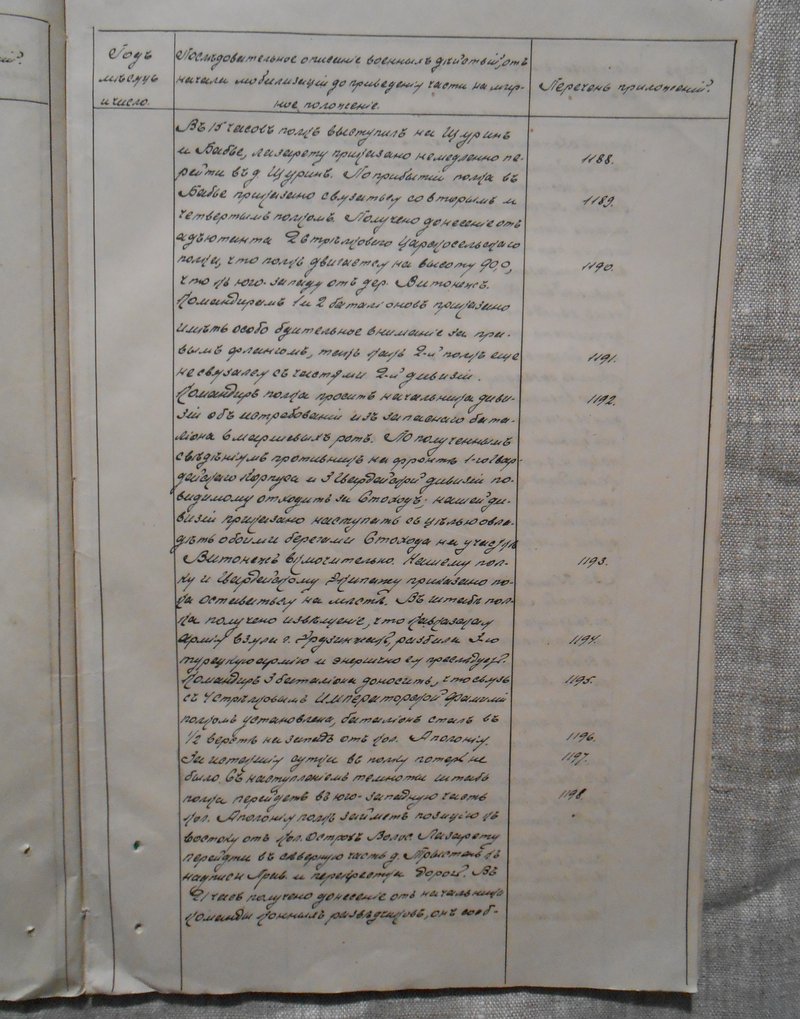 Годъ
мѣсяцъ
и число.
Послѣдовательное описаніе военныхъ дѣйствій, отъ
начала мобилизаціи до приведенія части на мир-
ное положеніе.
Перечень приложеній.
Въ 15 часовъ полкъ выступилъ на Щуринъ
и Бабье, лазарету приказано немедленно пе-
1188.
рейти въ д. Щуринъ. По прибытіи полка въ
Бабье приказано связаться со вторымъ и
1189.
четвертымъ полкомъ. Получено донесеніе отъ
адъютанта 2 стрѣлковаго Царскосельскаго
полка, что полкъ двигается на высоту 90,0,
1190.
что къ юго-западу отъ дер. Витонежъ.
Командирамъ 1 и 2 баталіоновъ приказано
имѣть особо бдительное вниманіе за пра-
вымъ флангомъ, такъ какъ 2-й полкъ еще
1191.
не связался съ частями 2-й дивизіи.
Командиръ полка проситъ начальника диви-
1192.
зіи объ истребованіи изъ запаснаго бата-
ліона 6 маршевыхъ ротъ. По полученнымъ
свѣдѣніямъ противникъ на фронтѣ 1-го Гвар-
дейскаго Корпуса и 3 Гвардейской дивизіи по-
видимому отходитъ за Стоходъ; нашей ди-
визіи приказано наступать съ цѣлью овла-
дѣть обоими берегами Стохода на участкѣ
Витонежъ включительно. Нашему пол-
1193.
ку и Гвардейскому Экипажу приказано по-
ка оставаться на мѣстѣ. Въ штабъ пол-
ка получено извѣщеніе, что Кавказская
армія взяла г. разбила 3-ю
1194.
турецкую армію и энергично ея преслѣдуетъ.
Командиръ 3 баталіона доноситъ, что связь
1195.
съ 4 стрѣлковымъ Императорской Фамиліи
полкомъ установлена, баталіонъ сталъ въ
1/2 верстѣ на западъ отъ кол. Аполонія.
1196.
За истекшія сутки въ полку потерь не
1197.
было. Съ наступленіемъ темноты штабъ
полка перейдетъ въ юго-западную часть
1198.
кол. Аполонія полкъ займетъ позицію къ
востоку отъ кол. Островъ Волос. Лазарету
перейти въ сѣверную часть д. Трыстень къ
надписи Грив. и перекрестка дорогъ. Въ
21 часъ получено донесеніе отъ начальника
команды конныхъ развѣдчиковъ, онъ сооб-